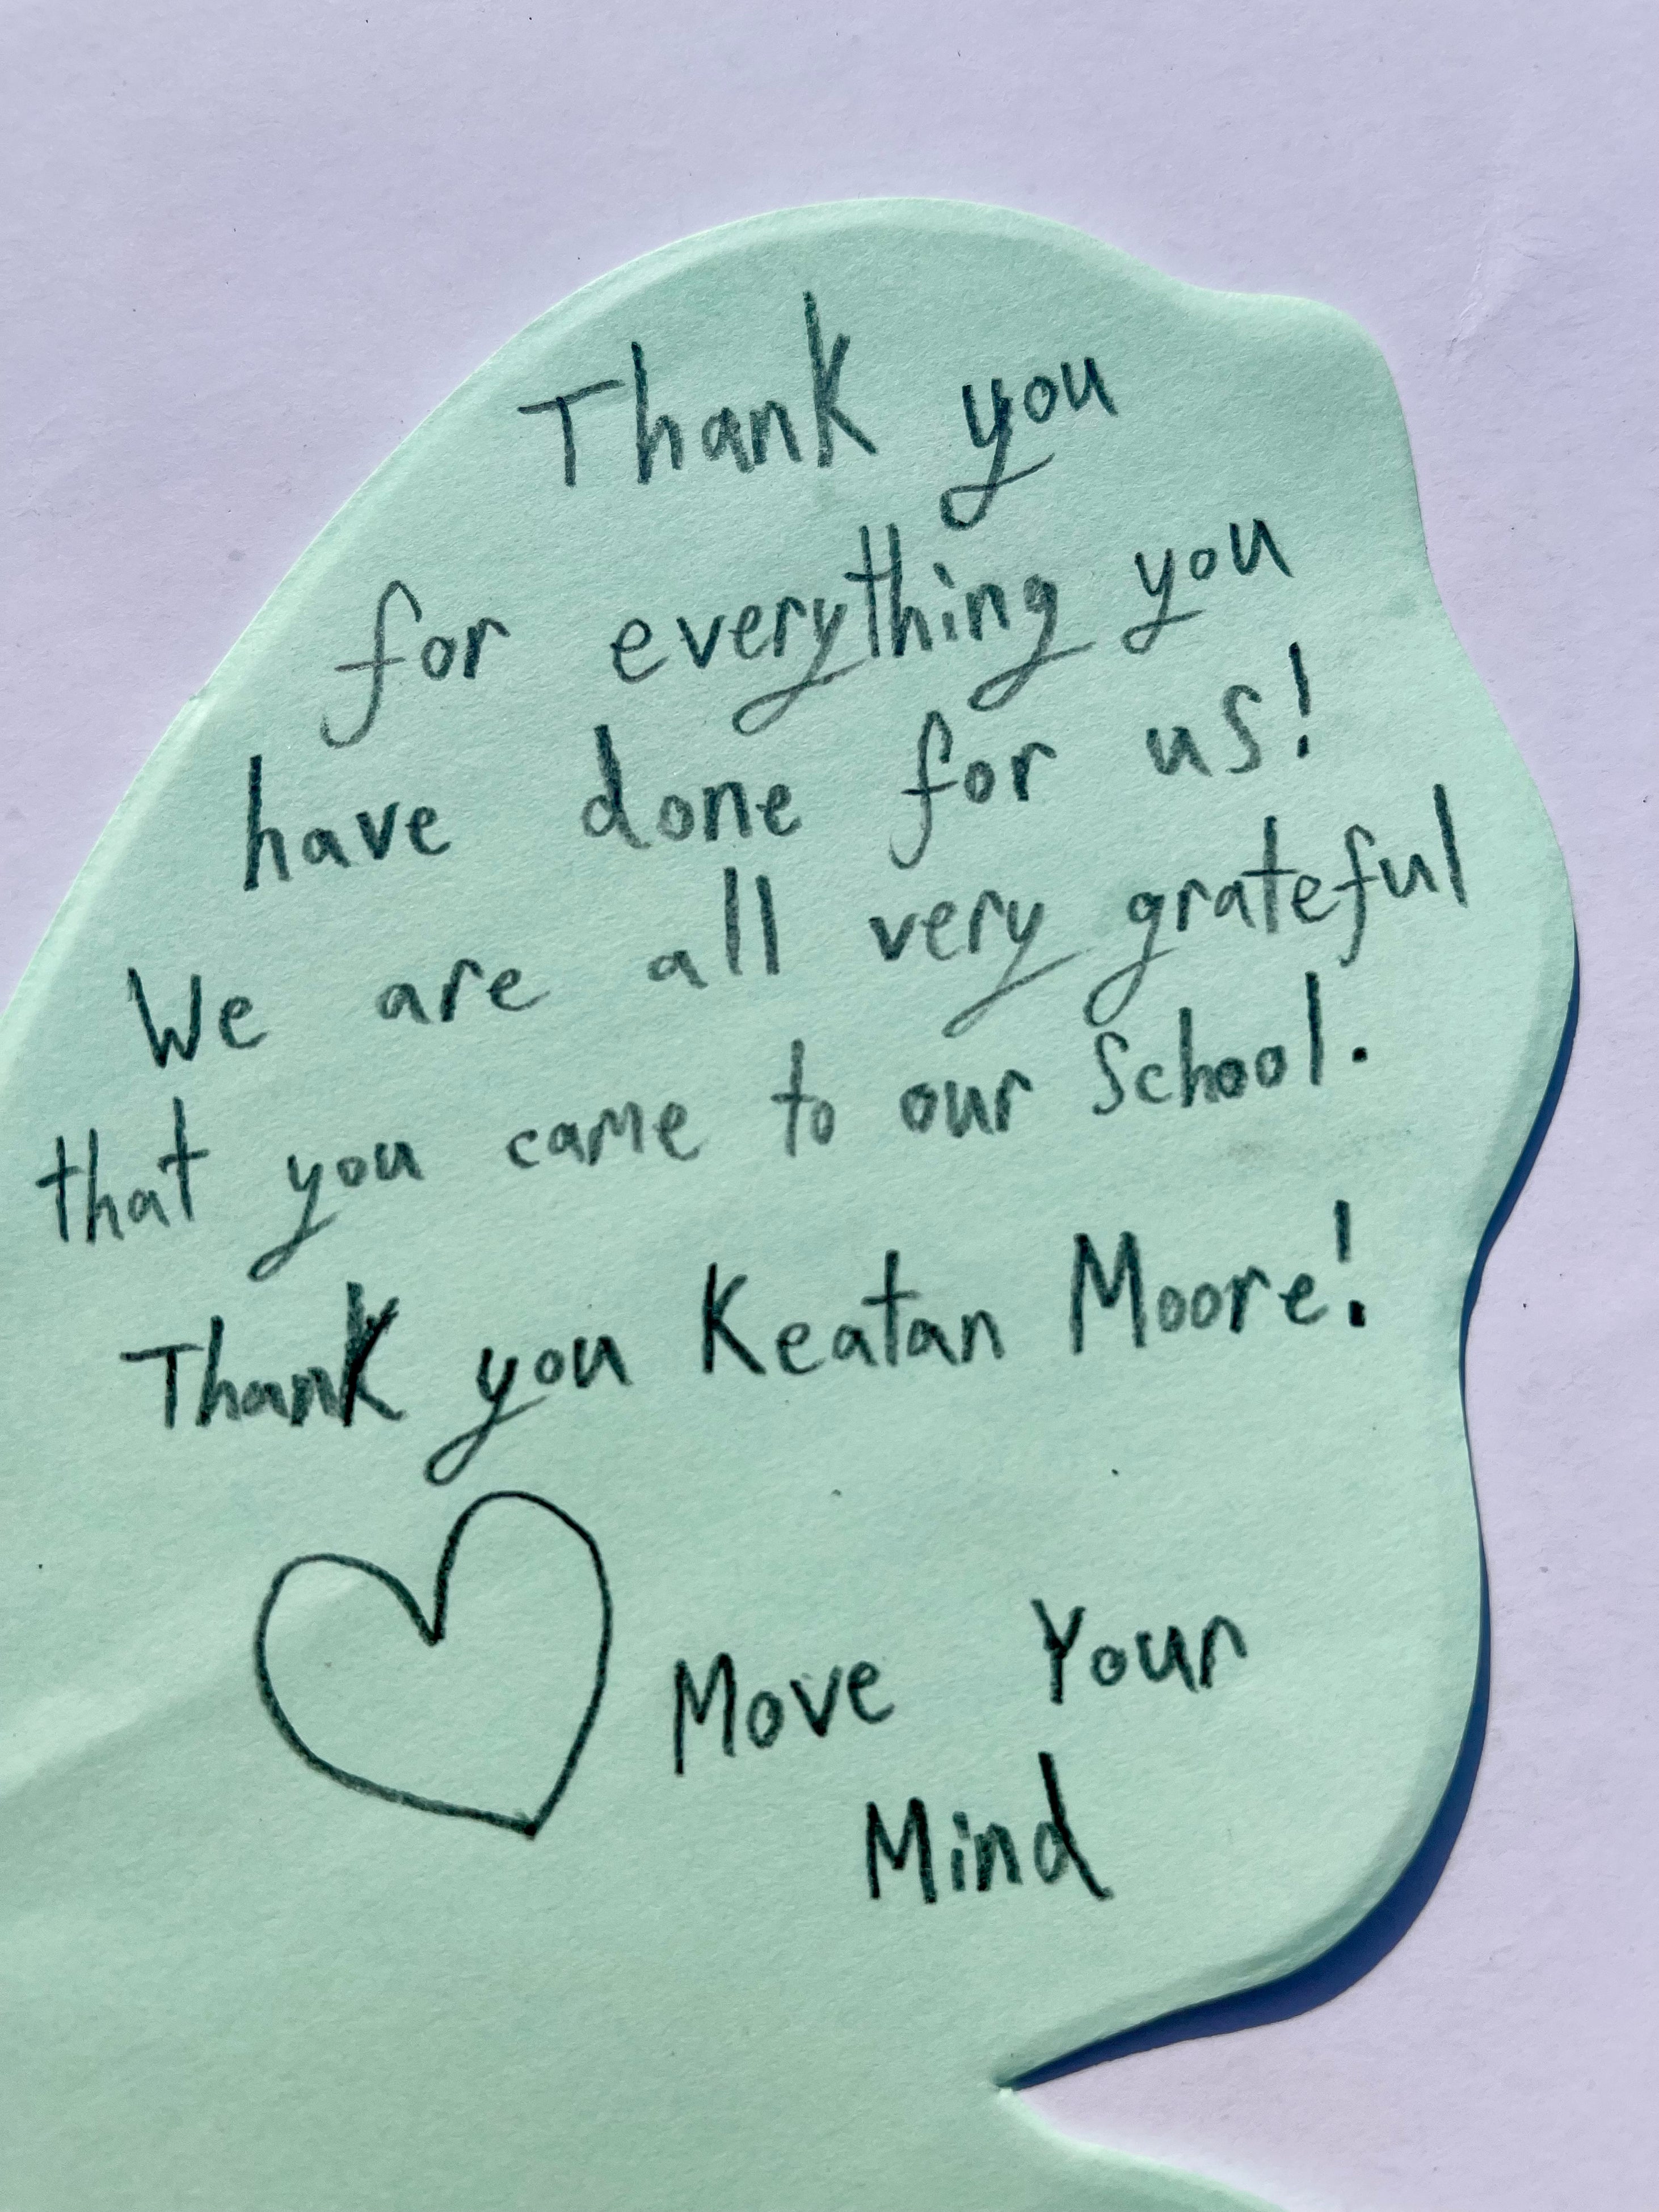 Thank you
for everything you
have done for us!
We are all very grateful
that you came to our School.
Thank you Keatan Moore!
Move Your
Mind